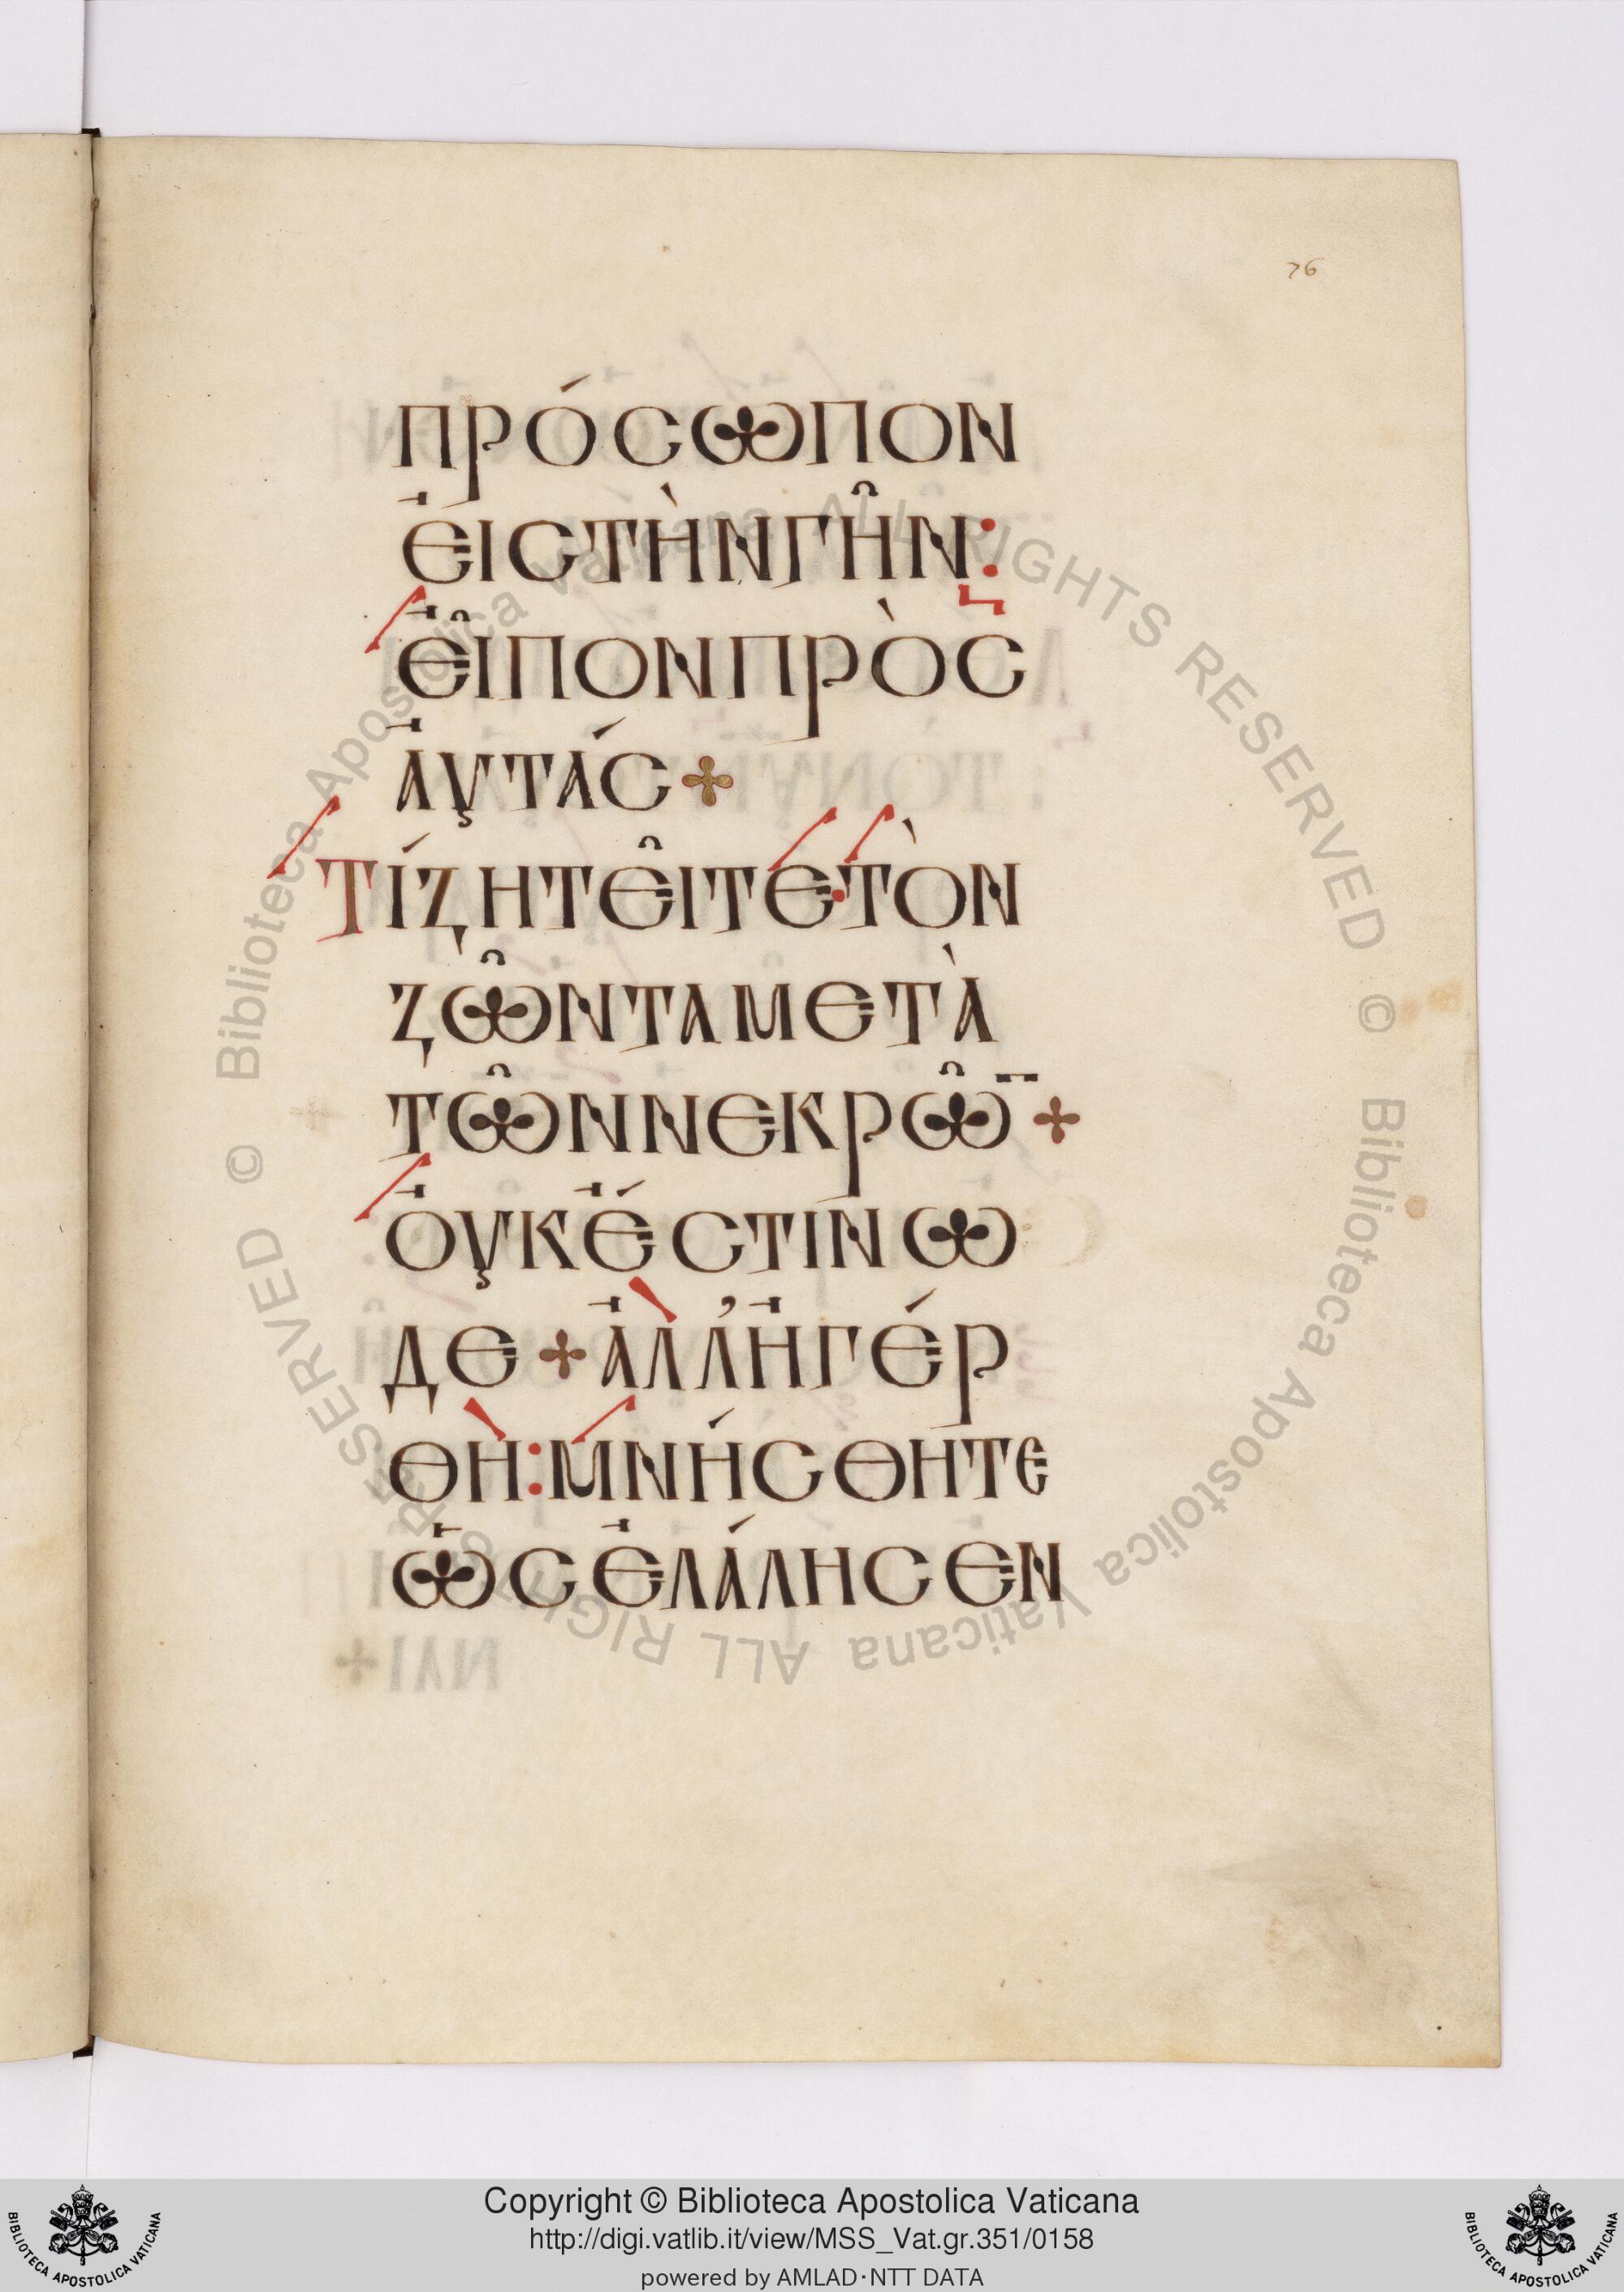 76
πρόσωπον
ἐιςτὴνγῆν:
ἐῖπονπρὸς
ἀυτάς+
Τίζητεῖτε·τὸν
ζῶνταμετὰ
τῶννεκρῶ̅+
ὀυκἔστινω
δε+ἀλλ᾽ἠγέρ
θη:μνήσθητε
ὡςἐλάλησεν
© Biblioteca Apostolica Vaticana ALL RIGHTS RESERVED
© Biblioteca Apostolica Vaticana ALL RIGHTS RESERVED
BIBLIOTECA APOSTOLICA VATICANA
Copyright © Biblioteca Apostolica Vaticana
http://digi.vatlib.it/view/MSS_Vat.gr.351/0158
powered by AMLAD·NTT DATA
BIBLIOTECA APOSTOLICA VATICANA